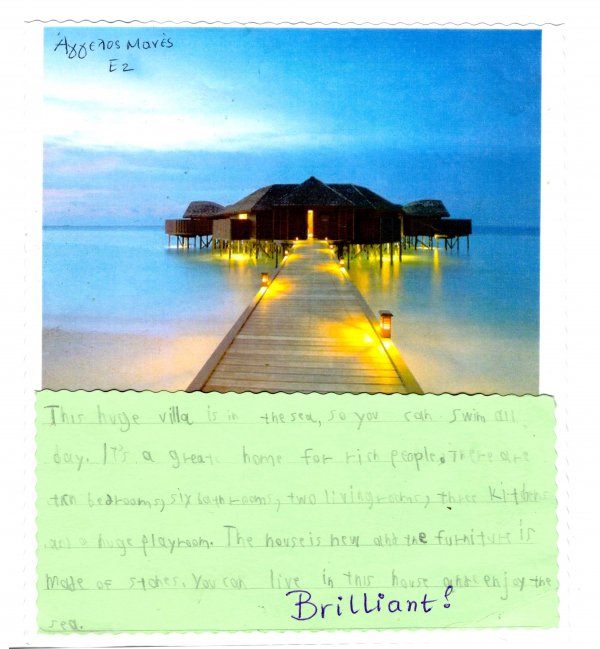 Άγγελος Μανές
Ε2
This huge villa is in the sea, so you can swim all
day. It's a great home for rich people. There are
ten bedrooms, six bathrooms, two livingrooms, three
and a huge playroom. The house is new and the furniture is
made of stones. You can live in this house and enjoy the
sea.
Brilliant!